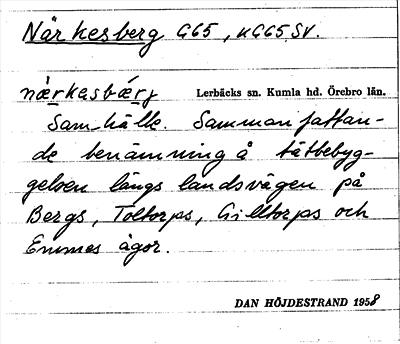 Närkesberg G65, UG65SV.
nä̀rkasbǽrj Lerbäcks sn. Kumla hd. Örebro län.
Samhälle. Sammanfattan-
de benämning å tättbebyg-
gelsen längs landsvägen på
Bergs, Toltorps, Gilltorps och
Emmes ägor.
DAN HÖJDESTRAND 1958